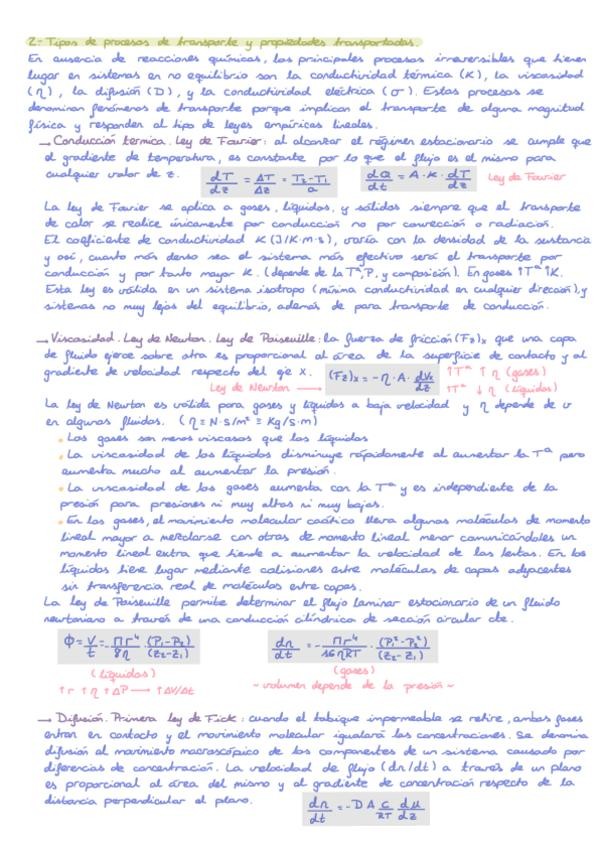 2- Tipos de procesos de transporte y propiedades transportadas.
En ausencia de reacciones químicas, los principales procesos irreversibles que tienen
lugar en sistemas en no equilibrio son la conductividad térmica (K), la viscosidad
(η), la difusión (D), y la conductividad eléctrica (σ). Estos procesos se
denominan fenómenos de transporte porque implican el transporte de alguna magnitud
física y responden al tipo de leyes empíricas lineales.
→ Conducción termica. Ley de Fourier: al alcanzar el régimen estacionario se cumple que
el gradiente de temperatura, es constante por lo que el flujo es el mismo para
cualquier valor de z. dT/dz = ΔT/Δz = T₂-T₁/a dQ/dt = A·K·dT/dz Ley de Fourier
La ley de Fourier se aplica a gases, líquidos, y sólidos siempre que el transporte
de calor se realice únicamente por conducción no por convección o radiación.
El coeficiente de conductividad K (J/K·m·s), varía con la densidad de la sustancia
y así, cuanto más denso sea el sistema más efectivo será el transporte por
conducción y por tanto mayor K. (depende de la Tª, P, y composición). En gases ↑Tª ↑K.
Esta ley es válida en un sistema isotropo (misma conductividad en cualquier dirección), y
sistemas no muy lejos del equilibrio, además de para transporte de conducción.
→ Viscosidad. Ley de Newton. Ley de Poiseuille: la fuerza de fricción (Fz)x que una capa
de fluido ejerce sobre otra es proporcional al área de la superficie de contacto y al
gradiente de velocidad respecto del eje X. (Fz)x = -η·A·dVx/dz ↑Tª ↑η (gases)
Ley de Newton → ↑Tª ↓η (líquidos)
La ley de Newton es válida para gases y líquidos a baja velocidad y η depende de v
en algunos fluidos. (η ≡ N·s/m² ≡ Kg/s·m)
• Los gases son menos viscosos que los líquidos
• La viscosidad de los líquidos disminuye rápidamente al aumentar la Tª pero
aumenta mucho al aumentar la presión.
• La viscosidad de los gases aumenta con la Tª y es independiente de la
presión para presiones ni muy altas ni muy bajas.
• En los gases, el movimiento molecular caótico lleva algunas moléculas de momento
lineal mayor a mezclarse con otras de momento lineal menor comunicándoles un
momento lineal extra que tiende a aumentar la velocidad de las lentas. En los
líquidos tiene lugar mediante colisiones entre moléculas de capas adyacentes
sin transferencia real de moléculas entre capas.
La ley de Poiseuille permite determinar el flujo laminar estacionario de un fluido
newtoniano a través de una conducción cilíndrica de sección circular cte.
Φ = V/t = -πr⁴/8η · (P₁-P₂)/(z₂-z₁) dn/dt = -πr⁴/16ηRT · (P₁²-P₂²)/(z₂-z₁)
(líquidos) (gases)
↑r ↑η ↑ΔP → ↑ΔV/Δt ~ volumen depende de la presión ~
→ Difusión. Primera ley de Fick: cuando el tabique impermeable se retire, ambas fases
entran en contacto y el movimiento molecular igualará las concentraciones. Se denomina
difusión al movimiento macroscópico de los componentes de un sistema causado por
diferencias de concentración. La velocidad de flujo (dn/dt) a través de un plano
es proporcional al área del mismo y al gradiente de concentración respecto de la
distancia perpendicular al plano. dn/dt = -D A c/RT dμ/dz